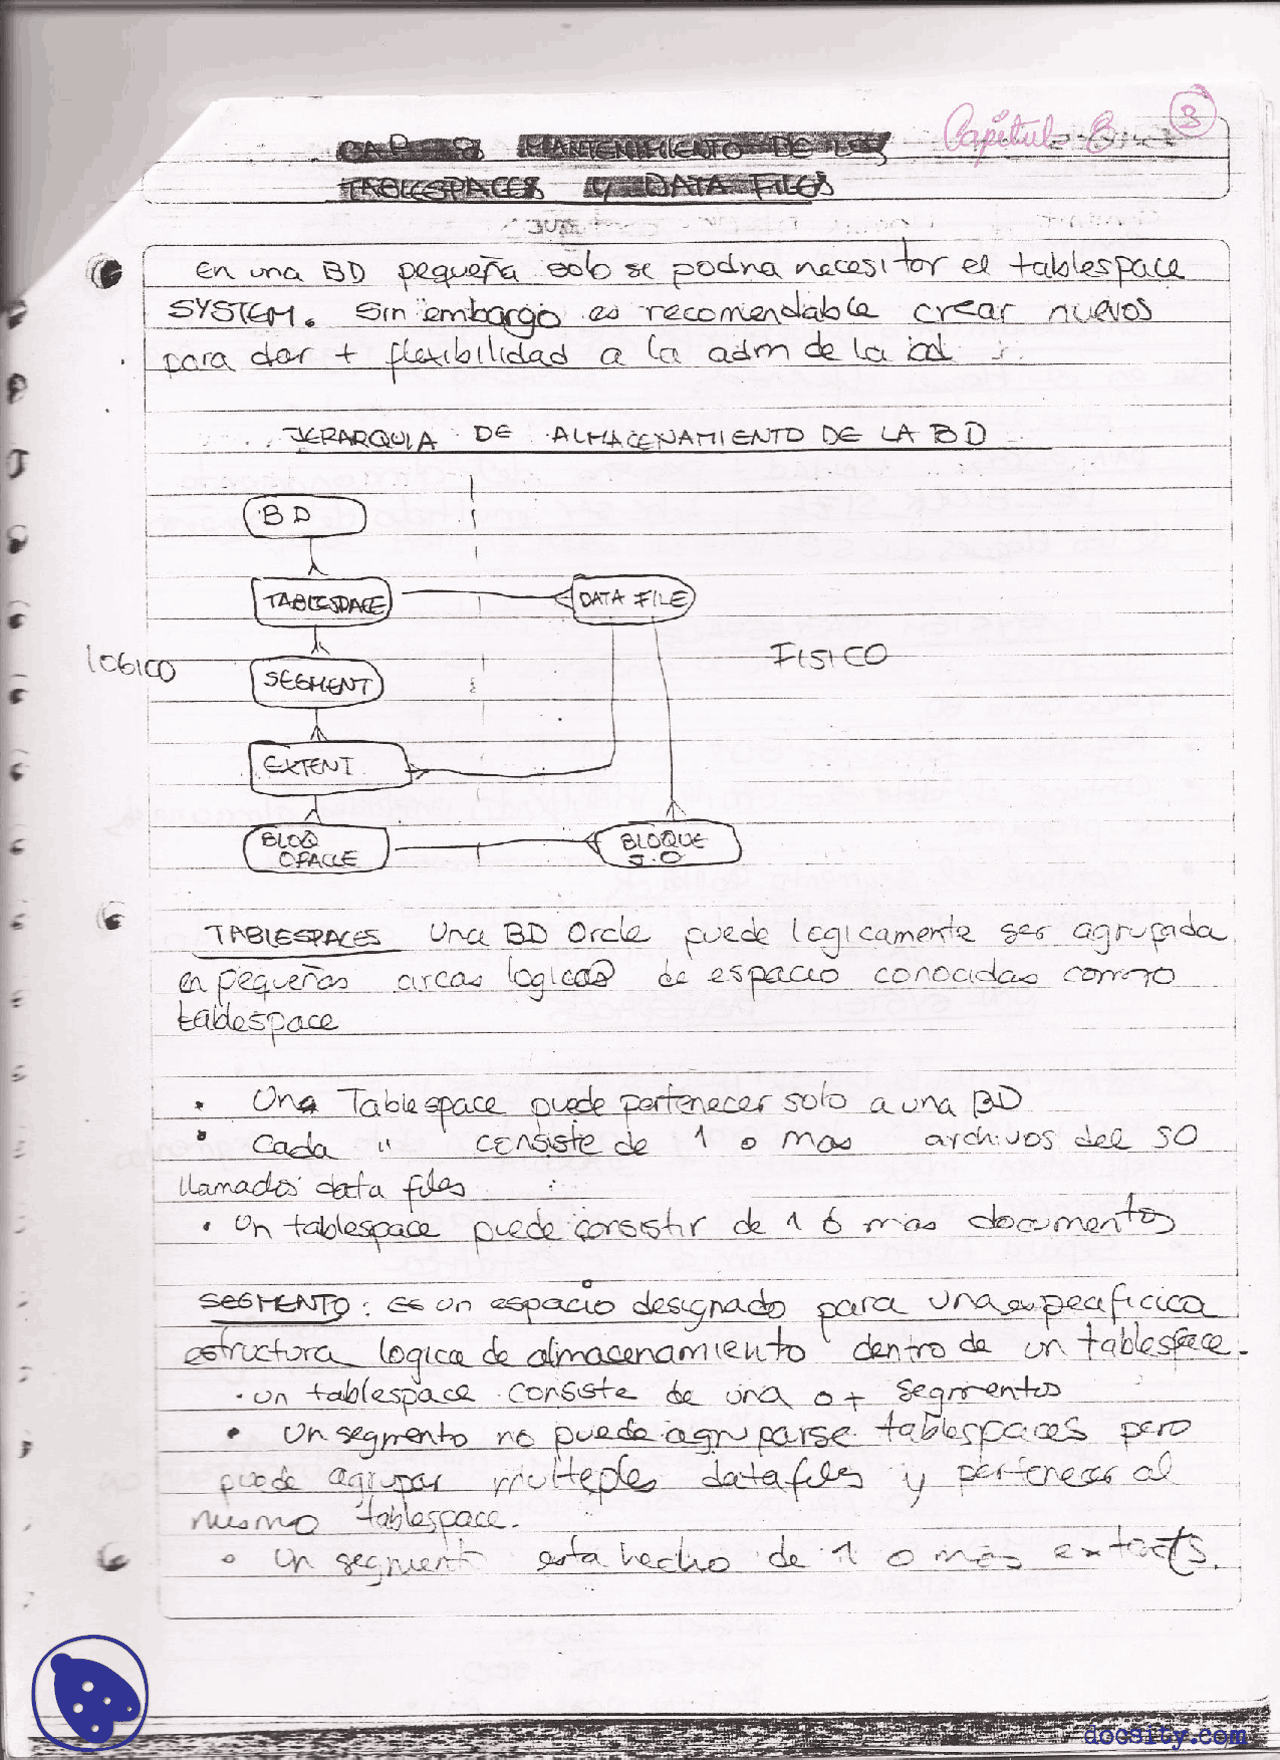 Capitulo 8 3
CAP 8 MANTENIMIENTO DE LOS
TABLESPACES Y DATA FILES
En una BD pequeña solo se podria necesitar el tablespace
SYSTEM. Sin embargo es recomendable crear nuevos
para dar + flexibilidad a la adm de la bd
JERARQUIA DE ALMACENAMIENTO DE LA BD
BD
TABLESPACE DATA FILE
LOGICO SEGMENT FISICO
EXTENT
BLOQ BLOQUE
ORACLE S.O
TABLESPACES Una BD Orcle puede logicamente ser agrupada
en pequeñas areas logicas de espacio conocidas como
tablespace
• Una Tablespace puede pertenecer solo a una BD
• Cada " consiste de 1 o mas archivos del SO
llamados data files
• Un tablespace puede consistir de 1 ó mas documentos
SEGMENTO: Es un espacio designado para una especificica
estructura logica de almacenamiento dentro de un tablespace.
• un tablespace consiste de una o + segmentos
• Un segmento no puede agruparse tablespaces pero
puede agrupar multeples datafiles y pertenecer al
mismo tablespace.
• Un segment esta hecho de 1 o mas
docsity.com